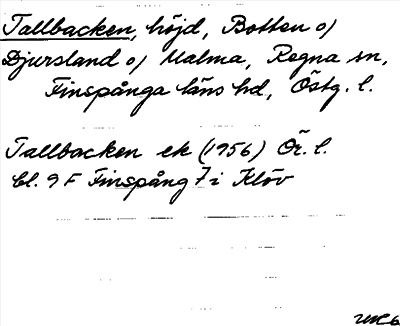 Tallbacken, höjd, Botten o/
Djursland o/ Malma, Regna sn,
Finspånga läns hd, Östg. l.
Tallbacken ek (1956) Ö. l.
bl. 9 F Finspång 7 i Klöv